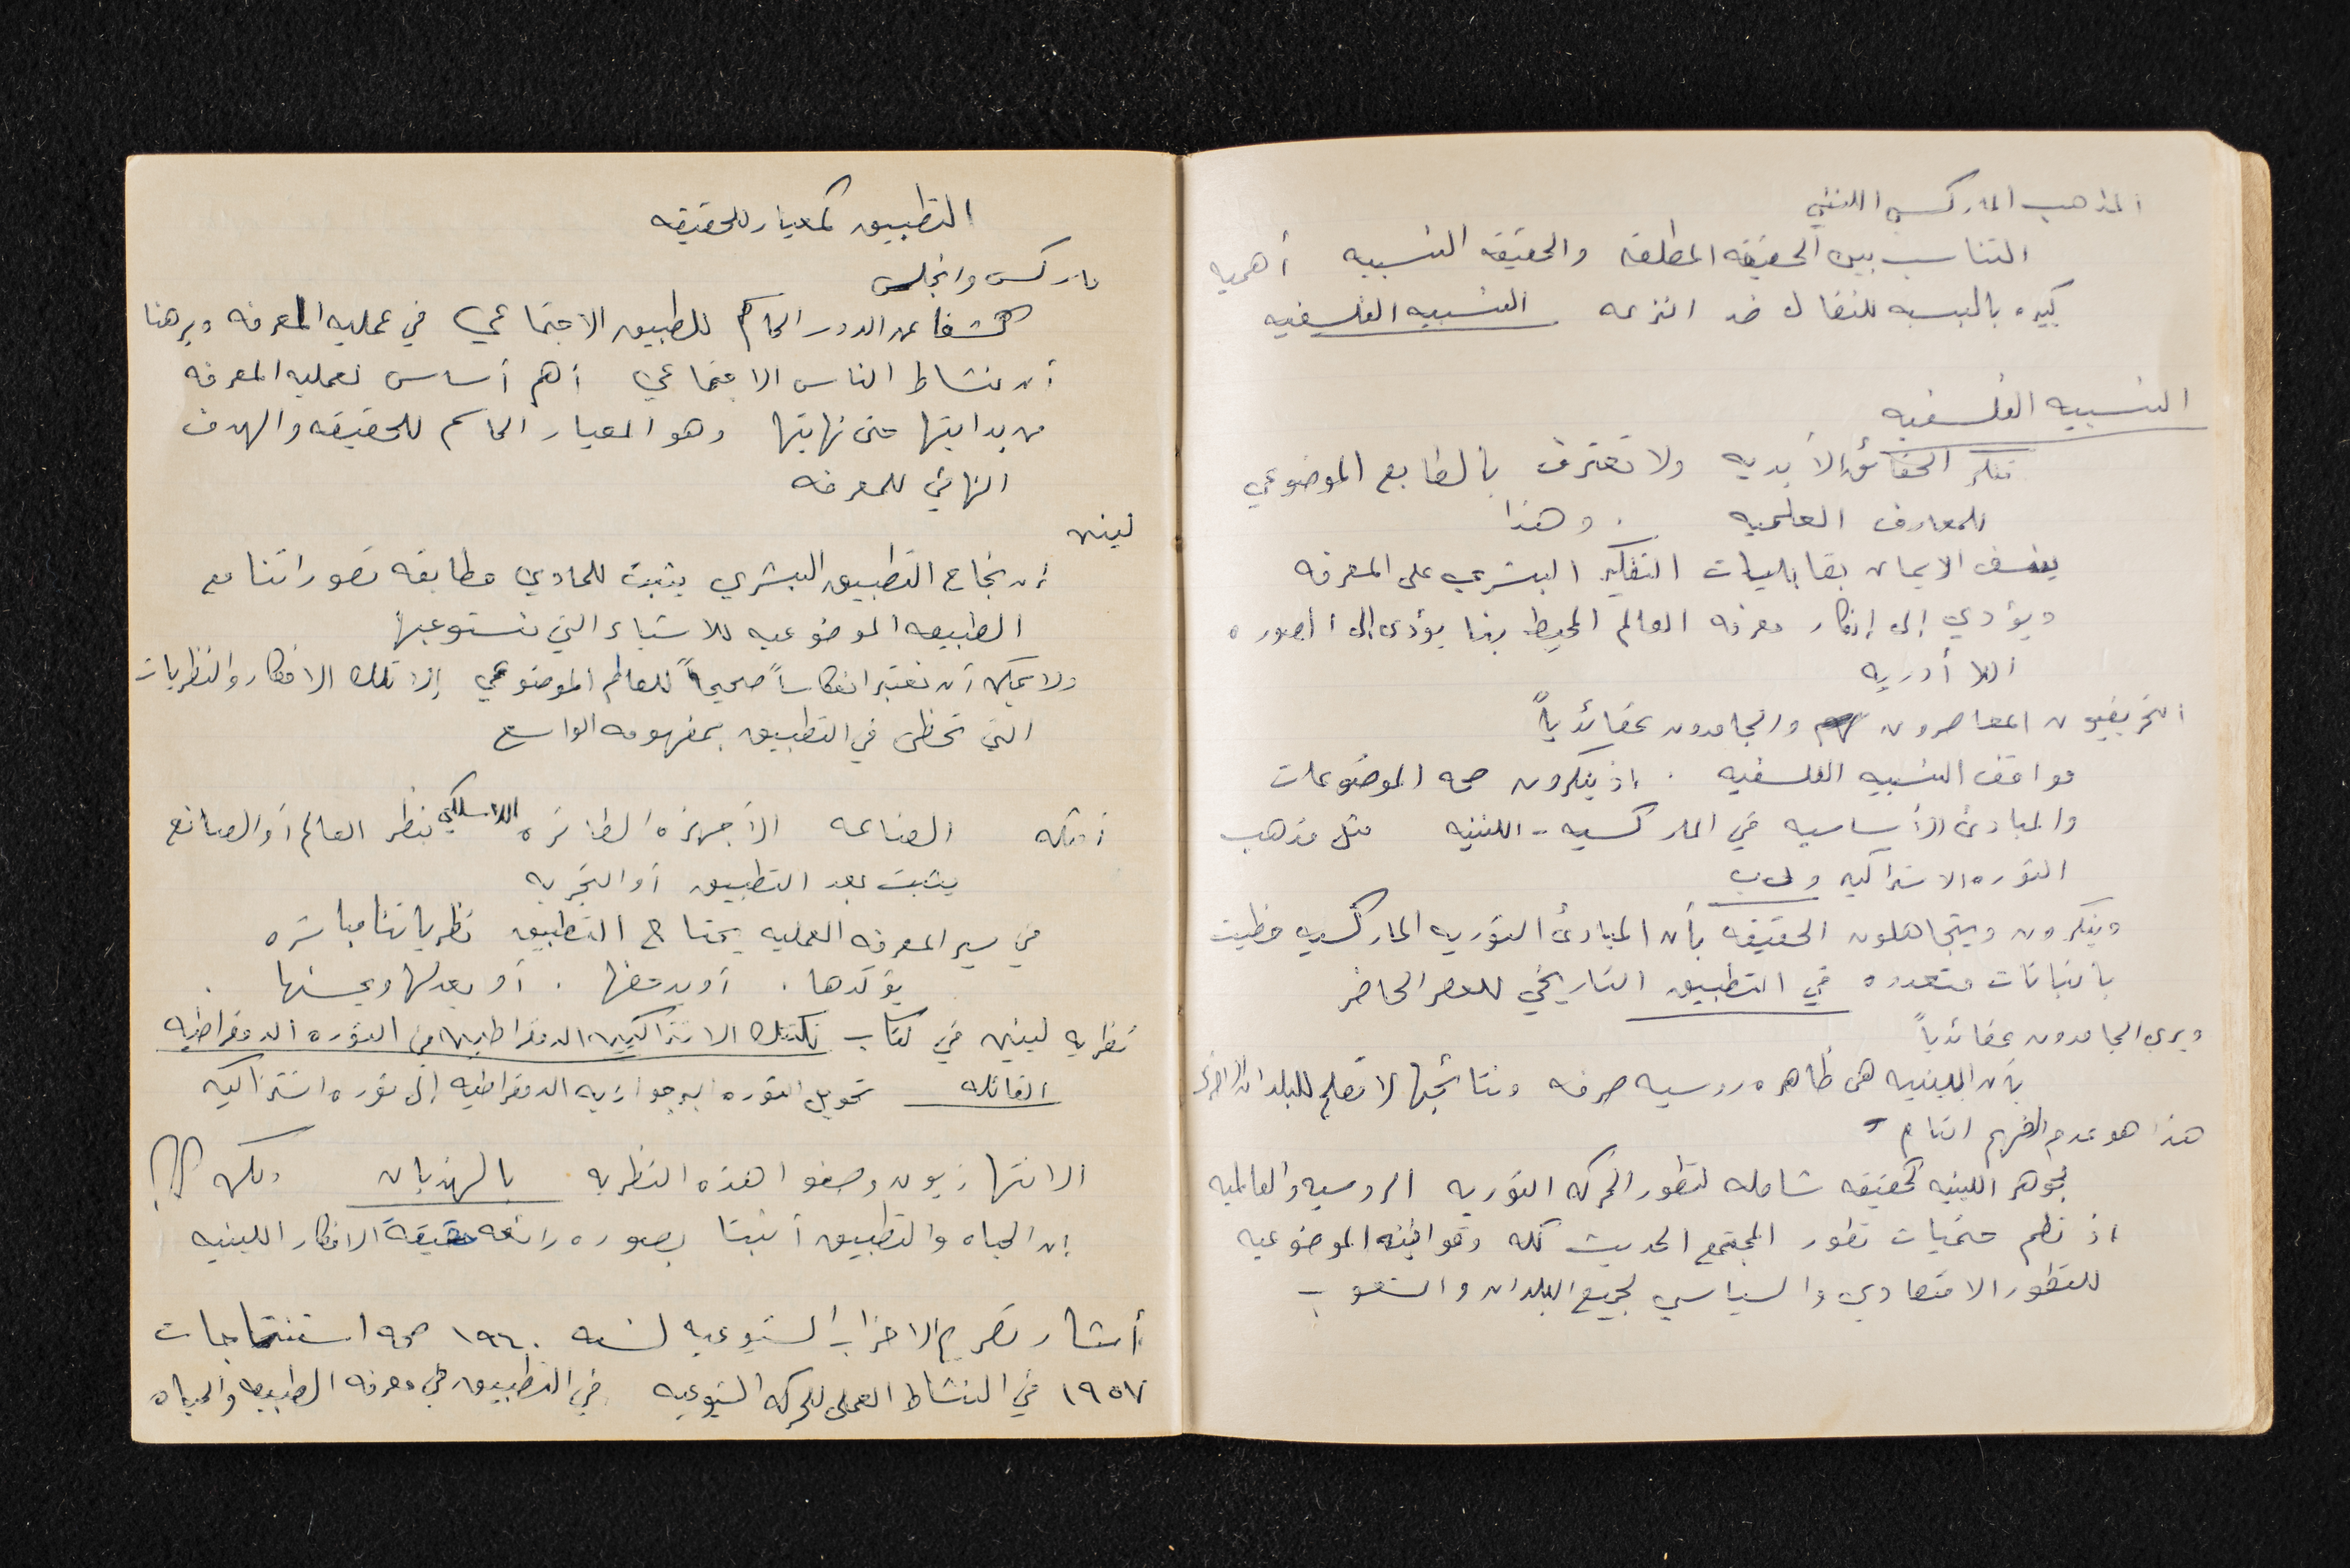 المذهب الماركسي اللنيني
التناسب بين الحقيقه المطلقه والحقيقه النسبيه أهميه
كبيره بالنسبه للنضال ضد النزعه النسبيه الفلسفيه
النسبيه الفلسفيه
تنكر الحقائق الأبديه ولا تعترف بالطابع الموضوعي
للمعارف العلميه . وهذا
ينسف الايمان بقابليات التفكير البشري على المعرفه
ويؤدي إلى إنكار معرفه العالم المحيط بنا يؤدى إلى الصوره
اللا أدريه
التحريفيون المعاصرون والجامدون عقائدياً
مواقف النسبيه الفلسفيه . إذ ينكرون صحه الموضوعات
والمبادئ الأساسيه في الماركسيه - اللنينيه مثل مذهب
الثوره الاشتراكيه و
وينكرون ويتجاهلون الحقيقه بأن المبادئ الثوريه الماركسيه حظيت
باثباتات متعدده في التطبيق التاريخي للعصر الحاضر
ويرى الجامدون عقائدياً
بأن اللينينيه هى ظاهره روسيه صرفه ونتائجها لا تصلح للبلدان الاخرى
هذا هو عدم الفهم التام -
فجوهر اللينينيه كحقيقه شامله لتطور الحركه الثوريه الروسيه والعالميه
اذ نظم حتميات تطور المجتمع الحديث كله وقوانينه الموضوعيه
للتطور الاقتصادي والسياسي لجميع البلدان والشعوب
التطبيق كمعيار للحقيقه
ماركس وانجلس
كشفا عن الدور الحاسم للطبيق الاجتماعي في عمليه المعرفه وبرهنا
أن نشاط الناس الاجتماعي أهم أساس لعمليه المعرفه
من بدايتها حتى نهايتها وهو المعيار الحاسم للحقيقه والهدف
النهائي للمعرفه
لينين
إن نجاح التطبيق البشري يثبت للمادي مطابقه تصوراتنا مع
الطبيعه الموضوعيه للاشياء التي نستوعبها
ولا يمكن أن نعتبر انعكاساً صحيحاً للعالم الموضوعي إلا تلك الافكار والنظريات
التي تحظى في التطبيق بمفهومه الواسع
أمثله الصناعه الأجهزه الطائره اللاسلكي بنظر العالم أو الصانع
يثبت بعد التطبيق أو التجربه
في سير المعرفه العمليه يحتاج التطبيق نظرياتنا مباشره
يؤكدها . أو يدحضها . أو يعدلها ويحسنها .
نظريه لينين في كتاب تكتيك الاشتراكيين الدمقراطيين في الثوره الدمقراطيه
القائله تحويل الثوره البرجوازيه الدمقراطيه إلى ثوره اشتراكيه
الانتهازيون وصفوا هذه النظريه بالهذيان ولكن ؟؟!
إن الحياه والتطبيق أثبتا بصوره رائعه حقيقة الافكار اللينينيه
أشار تصريح الاحزاب الشيوعيه لسنه ١٩٦٠ صحه استنتاجات
١٩٥٧ في النشاط العملى للحركه الشيوعيه في التطبيق في معرفه الطبيعه والحياه